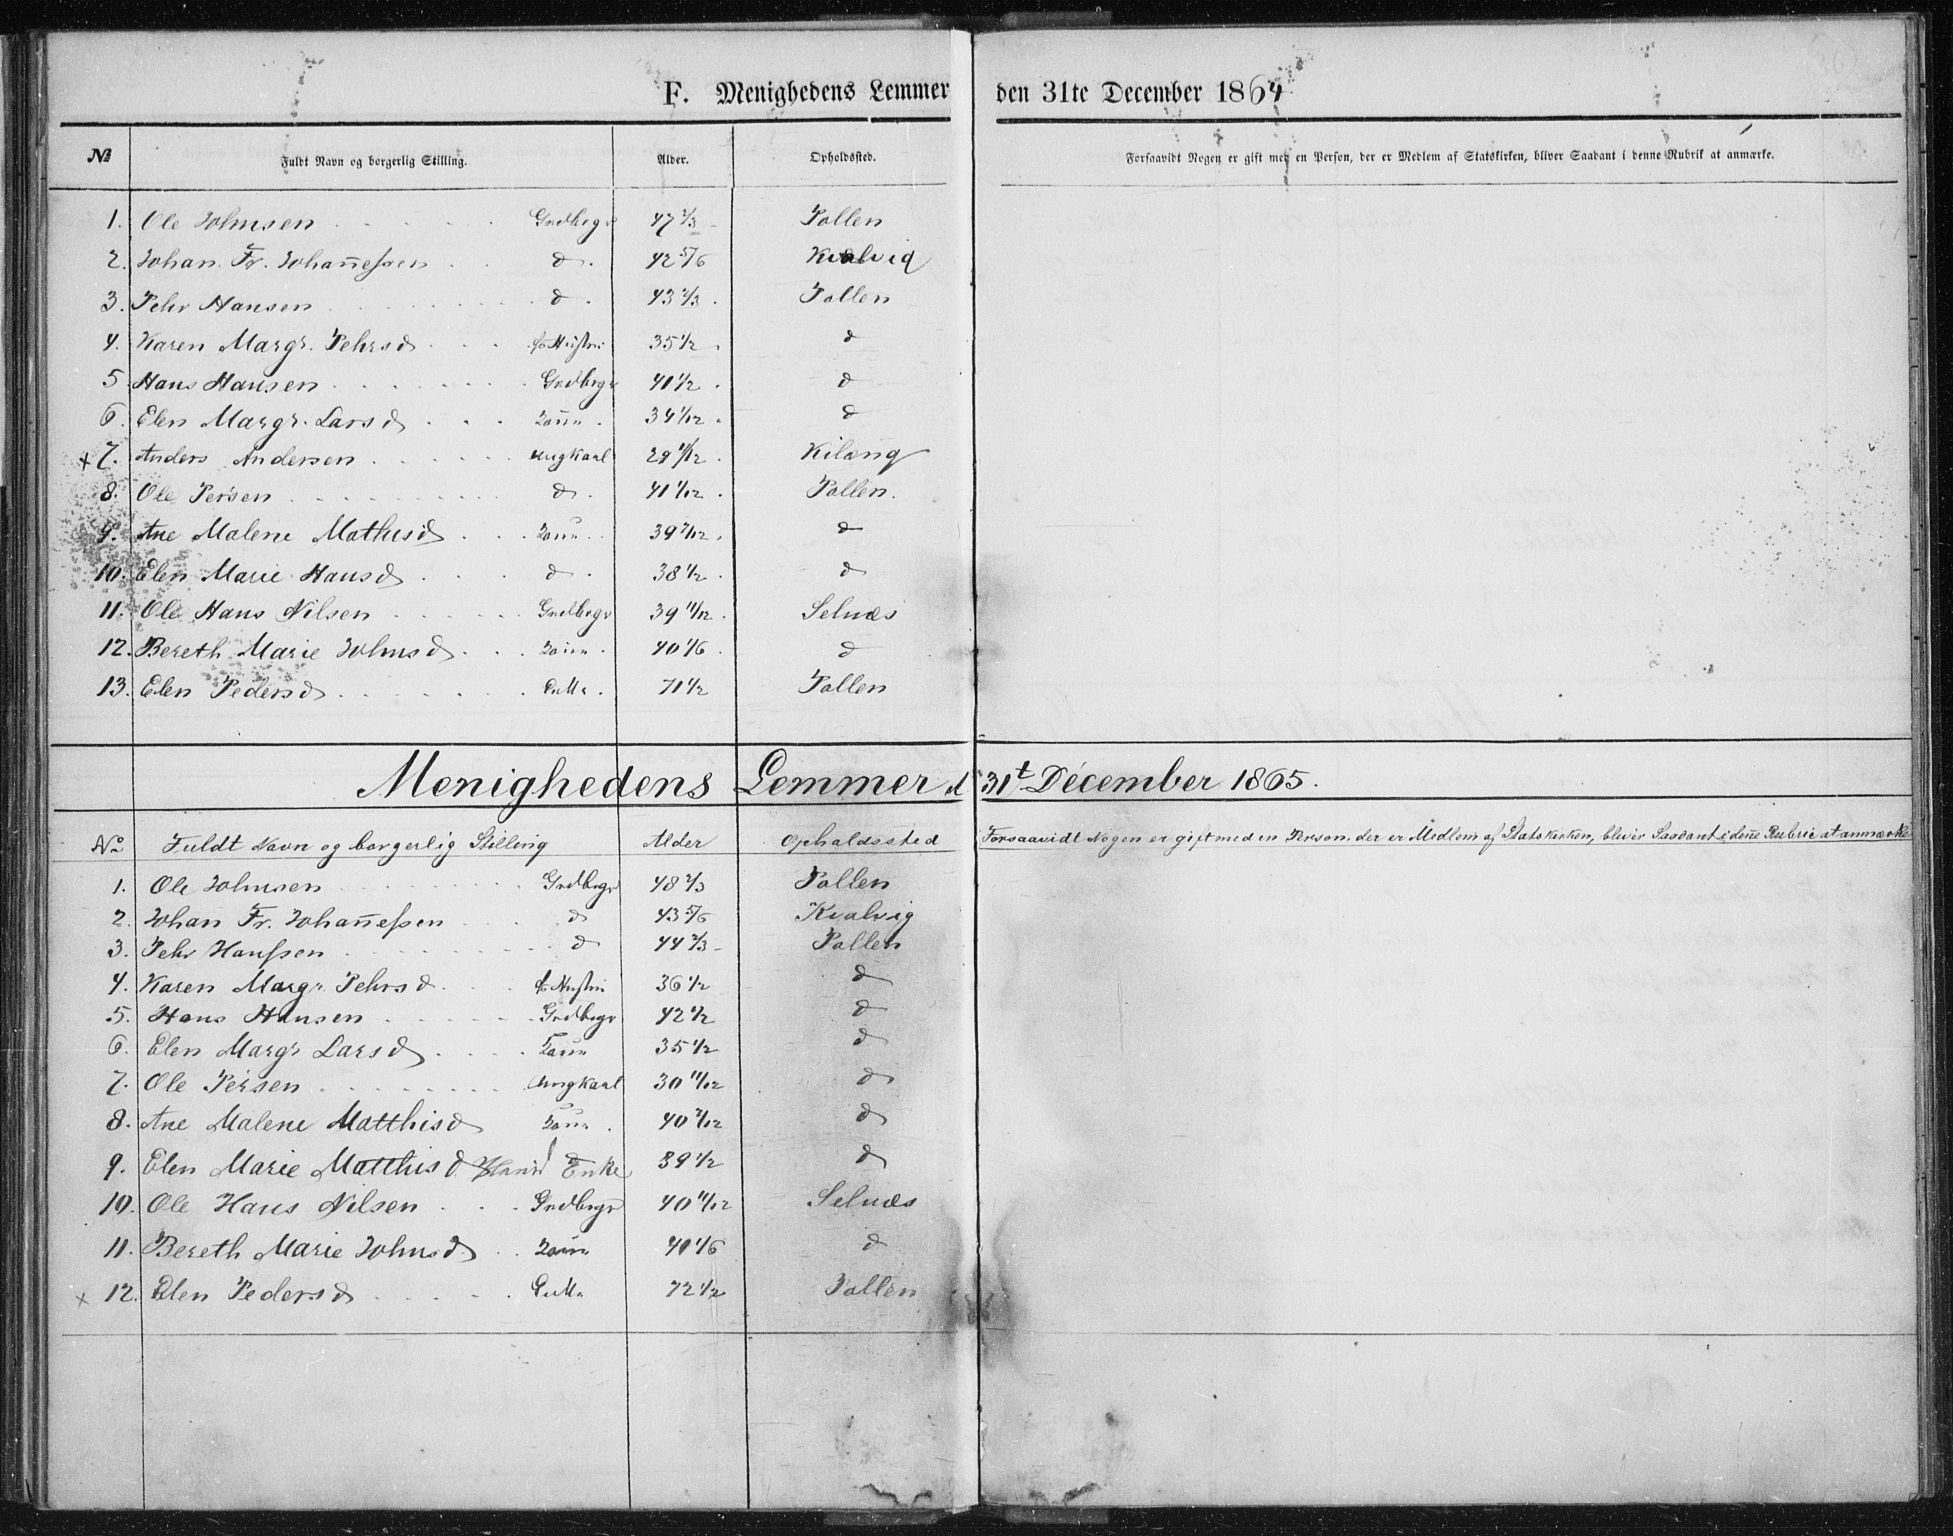 F. Menighedens Lemmer den 31te December 1864
№ Fuldt Navn og borgerlig Stilling. Alder. Opholdssted. Forsaavidt Nogen er gift med en Person, der er Medlem af Statskirken, bliver Saadant i denne Rubrik at anmærke.
1. Ole Johnsen Grdbrgr 47 2/3 Pollen
2. Johan Fr. Johan̄eſsen d. 42 5/6 Kvalvig
3. Pehr Hansen d. 43 2/3 Pollen
4. Karen Margr. Pehrsd Hustru 35 1/2 d
5 Hans Hansen Grdbrgr 41 1/2 d
6. Elen Margr. Larsd 34 1/12 d
+ 7. Anders Andersen ungkarl 29 11/12 Kilang
8. Ole Persen d. 41 1/12 Pollen.
9. Ane Malene Mathisd 39 2/12 d
10. Elen Marie Hansd d. 38 1/2 d
11. Ole Hans Nilsen Grdbrgr 39 11/12 Selnæs
12. Bereth Marie Johnsd 40 1/6 d
13. Elen Pedersd 71 1/2 Pollen
Menighedens Lemmer d 31t December 1865.
No Fuldt Navn og borgerlig Stilling Alder Opholdssted Forsaavidt Nogen er gift med en Person, der er Medlem af Statskirken, bliver Saadant i den̄e Rubrik at anmærke
1. Ole Johnsen Grdbrgr 48 2/3 Pollen
2. Johan Fr. Johan̄eſsen d 43 5/6 Kvalvig
3. Pehr Hanſsen d 44 2/3 Pollen
4. Karen Margr Pehrsd Hustru 36 1/2 d
5. Hans Hansen Grdbrgr 42 1/2 d
6. Elen Margr Larsd 35 1/2 d
7. Ole Persen Ungkarl 30 11/12 d
8. Ane Malene Matthisd 40 2/12 d
9. Elen Marie Matthisd Enke 39 1/2 d
10. Ole Hans Nilsen Grdbrgr 40 11/12 Selnæs
11. Bereth Marie Johnsd 41 1/6 d
+ 12. Elen Pedersd 72 1/2 Pollen